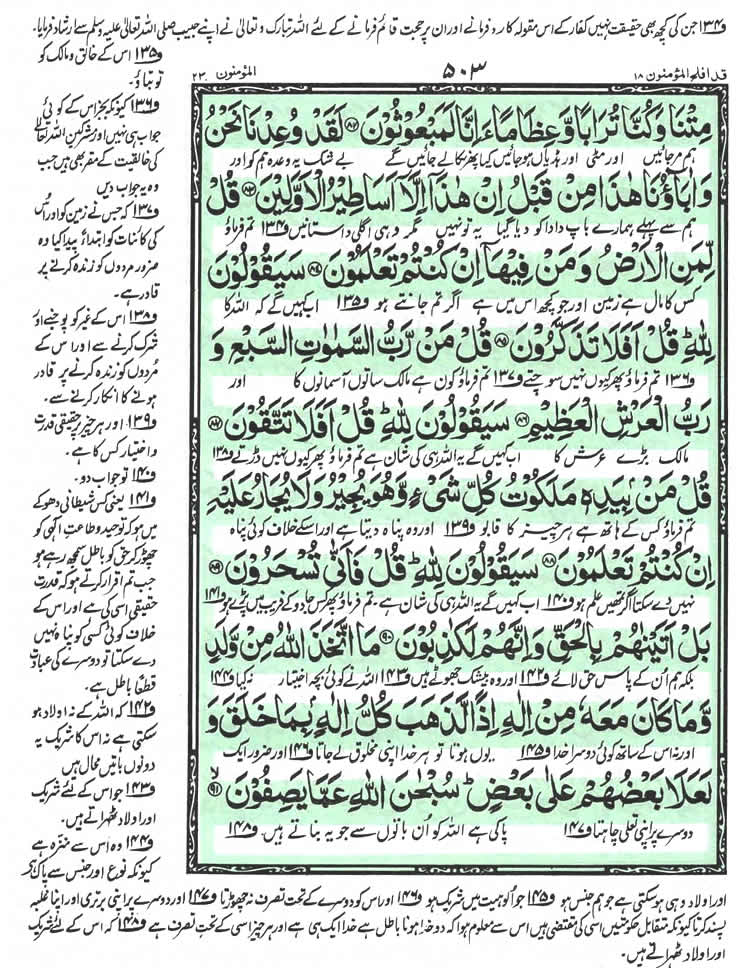 ف۱۳۴ جن کی کچھ بھی حقیقت نہیں کفار کے اس مقولہ کا رد فرمانے اور ان پر حجت قائم فرمانے کے لئے اللہ تبارک و تعالیٰ نے اپنے حبیب صلی اللہ تعالیٰ علیہ وسلم سے ارشاد فرمایا۔
قد افلح المؤمنون ۱۸
۵۰۳
المؤمنون ۲۳
مِتْنَا وَكُنَّا تُرَابًا وَّعِظَامًا ءَاِنَّا لَمَبْعُوْثُوْنَ ﴿۸۲﴾ لَقَدْ وُعِدْنَا نَحْنُ
ہم مر جائیں اور مٹی اور ہڈیاں ہوجائیں کیا پھر نکالے جائیں گے بے شک یہ وعدہ ہم کو اور
وَاٰبَآؤُنَا هٰذَا مِنْ قَبْلُ اِنْ هٰذَاۤ اِلَّاۤ اَسَاطِيْرُ الْاَوَّلِيْنَ ﴿۸۳﴾ قُلْ
ہم سے پہلے ہمارے باپ دادا کو دیا گیا یہ تو نہیں مگر وہی اگلی داستانیں ف۱۳۴ تم فرماؤ
لِّمَنِ الْاَرْضُ وَمَنْ فِيْهَاۤ اِنْ كُنْتُمْ تَعْلَمُوْنَ ﴿۸۴﴾ سَيَقُوْلُوْنَ
کس کا مال ہے زمین اور جو کچھ اس میں ہے اگر تم جانتے ہو ف۱۳۵ اب کہیں گے کہ اللہ کا
لِلّٰهِ ؕ قُلْ اَفَلَا تَذَكَّرُوْنَ ﴿۸۵﴾ قُلْ مَنْ رَّبُّ السَّمٰوٰتِ السَّبْعِ وَ
ف۱۳۶ تم فرماؤ پھر کیوں نہیں سوچتے ف۱۳۷ تم فرماؤ کون ہے مالک ساتوں آسمانوں کا اور
رَبُّ الْعَرْشِ الْعَظِيْمِ ﴿۸۶﴾ سَيَقُوْلُوْنَ لِلّٰهِ ؕ قُلْ اَفَلَا تَتَّقُوْنَ ﴿۸۷﴾
مالک بڑے عرش کا اب کہیں گے یہ اللہ ہی کی شان ہے تم فرماؤ پھر کیوں نہیں ڈرتے ف۱۳۸
قُلْ مَنْۢ بِيَدِهٖ مَلَكُوْتُ كُلِّ شَیْءٍ وَّهُوَ يُجِيْرُ وَلَا يُجَارُ عَلَيْهِ
تم فرماؤ کس کے ہاتھ ہے ہر چیز کا قابو ف۱۳۹ اور وہ پناہ دیتا ہے اور اسکے خلاف کوئی پناہ
اِنْ كُنْتُمْ تَعْلَمُوْنَ ﴿۸۸﴾ سَيَقُوْلُوْنَ لِلّٰهِ ؕ قُلْ فَاَنّٰی تُسْحَرُوْنَ ﴿۸۹﴾
نہیں دے سکتا اگر تمھیں علم ہو ف۱۴۰ اب کہیں گے یہ اللہ ہی کی شان ہے۔ تم فرماؤ پھر کس جادو کے فریب میں پڑے ہو ف۱۴۱
بَلْ اَتَيْنٰهُمْ بِالْحَقِّ وَاِنَّهُمْ لَكٰذِبُوْنَ ﴿۹۰﴾ مَا اتَّخَذَ اللّٰهُ مِنْ وَّلَدٍ
بلکہ ہم اُن کے پاس حق لائے ف۱۴۲ اور وہ بیشک جھوٹے ہیں ف۱۴۳ اللہ نے کوئی بچہ اختیار نہ کیا ف۱۴۴
وَّمَا كَانَ مَعَهٗ مِنْ اِلٰهٍ اِذًا لَّذَهَبَ كُلُّ اِلٰهٍۭ بِمَا خَلَقَ وَ
اور نہ اس کے ساتھ کوئی دوسرا خدا ف۱۴۵ یوں ہوتا تو ہر خدا اپنی مخلوق لے جاتا ف۱۴۶ اور ضرور ایک
لَعَلَا بَعْضُهُمْ عَلٰی بَعْضٍ ؕ سُبْحٰنَ اللّٰهِ عَمَّا يَصِفُوْنَ ﴿۹۱﴾ ۙ
دوسرے پر اپنی تعلی چاہتا ف۱۴۷ پاکی ہے اللہ کو اُن باتوں سے جو یہ بناتے ہیں۔ ف۱۴۸
ف۱۳۵ اس کے خالق و مالک کو
تو بتاؤ۔
ف۱۳۶ کیونکہ بجز اس کے کوئی
جواب ہی نہیں اور مشرکین اللہ تعالیٰ
کی خالقیت کے مقر بھی ہیں جب
وہ یہ جواب دیں
ف۱۳۷ کہ جس نے زمین کو اور اس
کی کائنات کو ابتداءً پیدا کیا وہ
ضرور مردوں کو زندہ کرنے پر
قادر ہے۔
ف۱۳۸ اس کے غیر کو پوجنے اور
شرک کرنے سے اور اس کے
مُردوں کو زندہ کرنے پر قادر
ہونے کا انکار کرنے سے۔
ف۱۳۹ اور ہر چیز پر حقیقی قدرت
و اختیار کس کا ہے۔
ف۱۴۰ تو جواب دو۔
ف۱۴۱ یعنی کس شیطانی دھوکے
میں ہو کہ توحید و طاعتِ الٰہی کو
چھوڑ کر حق کو باطل سمجھ رہے ہو
جب تم اقرار کرتے ہو کہ قدرت
حقیقی اسی کی ہے اور اس کے
خلاف کوئی کسی کو پناہ نہیں
دے سکتا تو دوسرے کی عبادت
قطعًا باطل ہے۔
ف۱۴۲ کہ اللہ کے نہ اولاد ہو
سکتی ہے نہ اس کا شریک یہ
دونوں باتیں محال ہیں
ف۱۴۳ جو اس کے لئے شریک
اور اولاد ٹھہراتے ہیں۔
ف۱۴۴ وہ اس سے منزہ ہے
کیونکہ نوع اور جنس سے پاک ہے
اور اولاد وہی ہوسکتی ہے جو ہم جنس ہو ف۱۴۵ جو الوہیت میں شریک ہو ف۱۴۶ اور اس کو دوسرے کے تحت تصرف نہ چھوڑتا ف۱۴۷ اور دوسرے پر اپنی برتری اور اپنا غلبہ
پسند کرتا کیونکہ متقابل حکومتیں اسی کی مقتضی ہیں اس سے معلوم ہوا کہ دو خدا ہونا باطل ہے خدا ایک ہی ہے اور ہر چیز اسی کے تحتِ تصرف ہے ف۱۴۸ کہ اس کے لئے شریک
اور اولاد ٹھہراتے ہیں۔